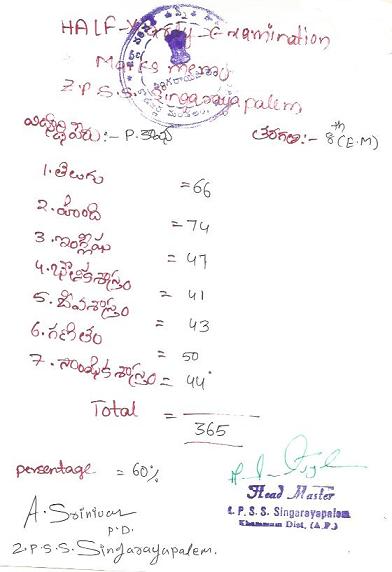 HALF-Yearly-Examination
Marks memo
Z.P.S.S. Singarayapalem
విద్యార్థి పేరు:- P. కావ్య
తరగతి:- 8th (E.M)
1. తెలుగు = 66
2. హింది = 74
3. ఇంగ్లీషు = 47
4. భౌతికశాస్త్రం = 41
5. జీవశాస్త్రం = 43
6. గణితం = 50
7. సాంఘీక శాస్త్రం = 44
Total = 365
persentage = 60%
A. Srinivas
P.D.
Z.P.S.S. Singarayapalem.
Head Master
Z. P. S. S. Singarayapalem
Khammam Dist. (A.P.)